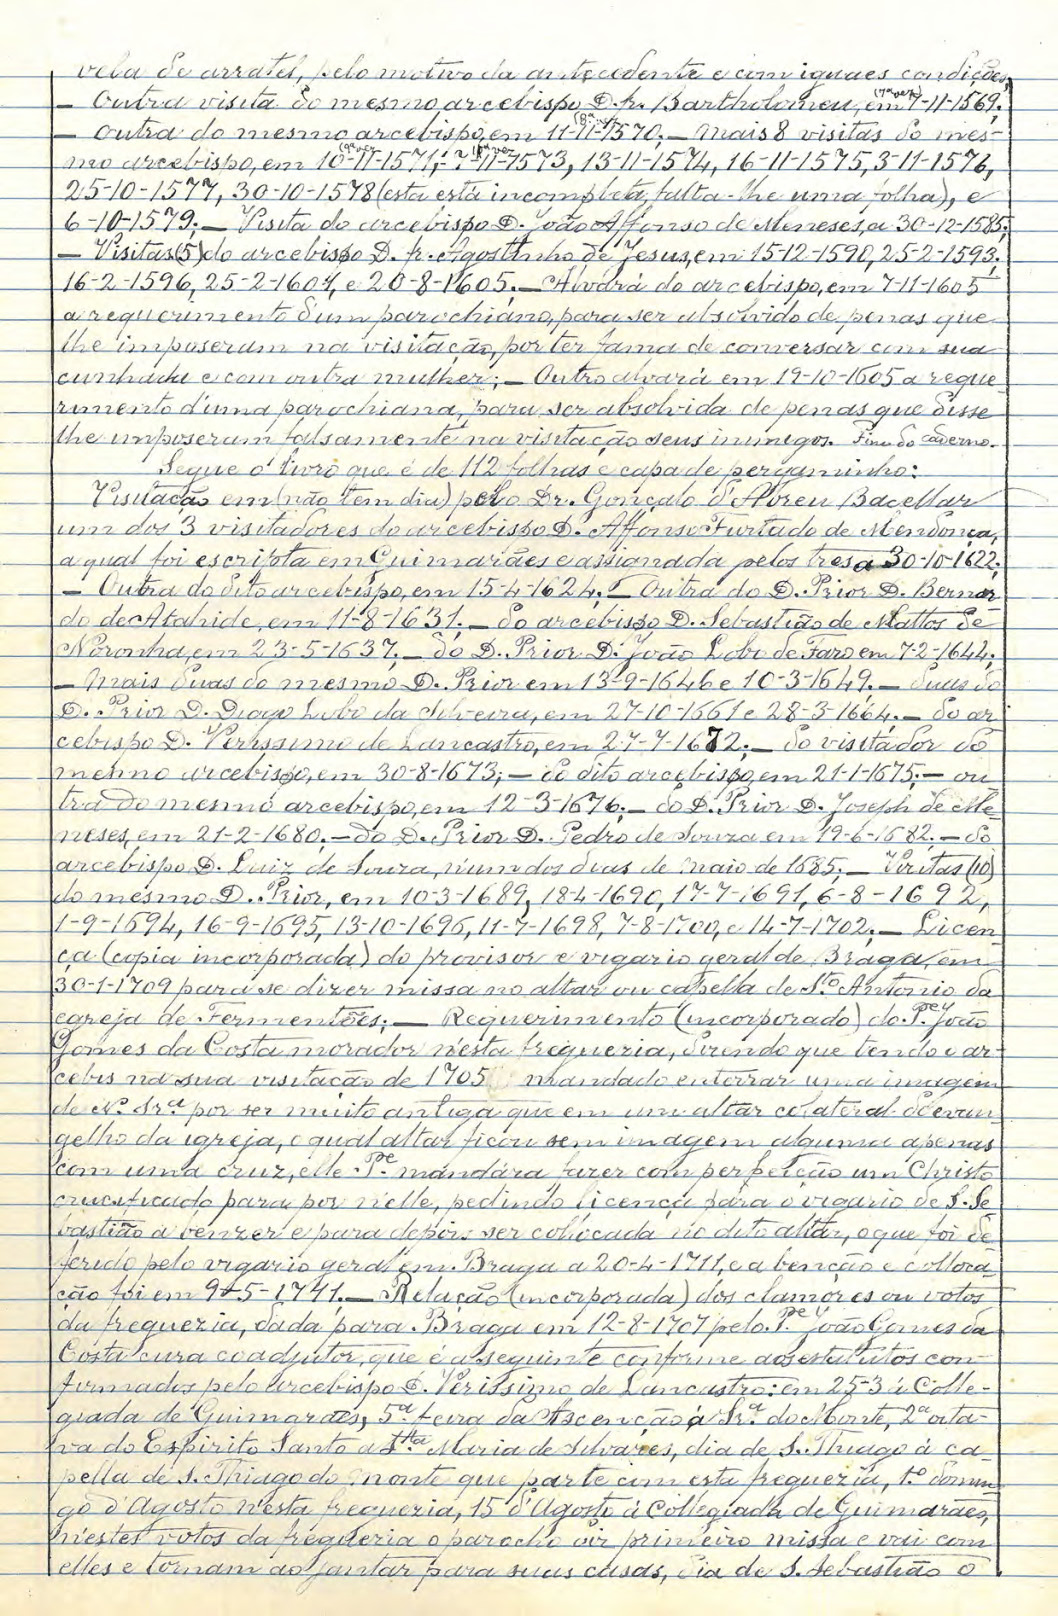 vela de arratel, pelo motivo da antecedente e com iguaes condições;
— Outra visita do mesmo arcebispo D. fr. Bartholomeu, em (7ª vez) 7-11-1569;
— Outra do mesmo arcebispo, em (8ª vez) 11-11-1570; — Mais 8 visitas do mes-
mo arcebispo, em (9ª vez) 10-11-1571; (10ª vez) ?-11-1573, 13-11-1574, 16-11-1575, 3-11-1576,
25-10-1577, 30-10-1578 (esta está incompleta, falta-lhe uma folha), e
6-10-1579; — Visita do arcebispo D. João Affonso de Meneses, a 30-12-1585;
— Visitas (5) do arcebispo D. fr. Agostinho de Jesus, em 15-12-1590, 25-2-1593,
16-2-1596, 25-2-1604, e 20-8-1605; — Alvará do arcebispo, em 7-11-1605
a requerimento d'um parochiano, para ser absolvido de penas que
lhe imposeram na visitação, por ter fama de conversar com sua
cunhada e com outra mulher; — Outro alvará em 19-10-1605 a reque-
rimento d'uma parochiana, para ser absolvida de penas que disse
lhe imposeram falsamente na visitação seus inimigos. Fim do caderno.
Segue o livro que é de 112 folhas e capa de pergaminho:
Visitação em (não tem dia) pelo Dr. Gonçalo d'Abreu Bacellar
um dos 3 visitadores do arcebispo D. Affonso Furtado de Mendonça,
a qual foi escripta em Guimarães e assignada pelos tres a 30-10-1622;
— Outra do dito arcebispo, em 15-4-1624; — Outra do D. Prior D. Bernar-
do de Atahide, em 11-8-1631; — Do arcebispo D. Sebastião de Mattos de
Noronha, em 23-5-1637; — do D. Prior D. João Lobo de Faro em 7-2-1644;
— Mais duas do mesmo D. Prior em 13-9-1646 e 10-3-1649; — Duas do
D. Prior D. Diogo Lobo da Silveira, em 27-10-1661 e 28-3-1664; — Do ar
cebispo D. Verissimo de Lancastro, em 27-7-1672; — do visitador do
mesmo arcebispo, em 30-8-1673; — do dito arcebispo, em 21-1-1675; — ou
tra do mesmo arcebispo, em 12-3-1676; — do D. Prior D. Joseph de Me-
neses, em 21-2-1680; — do D. Prior D. Pedro de Souza em 19-6-1682; — do
arcebispo D. Luiz de Souza, n'um dos dias de Maio de 1685; — Visitas (10)
do mesmo D. Prior, em 10-3-1689, 18-4-1690, 17-7-1691, 6-8-1692,
1-9-1694, 16-9-1695, 13-10-1696, 11-7-1698, 7-8-1700, e 14-7-1702; — Licen-
ça (copia incorporada) do provisor e vigario geral de Braga, em
30-1-1709 para se dizer missa no altar ou capella de Stº Antonio da
egreja de Fermentões; — Requerimento (incorporado) do Pe João
Gomes da Costa morador n'esta freguezia, dizendo que tendo o ar-
cebis na sua visitação de 1705 mandado enterrar uma imagem
de Nª Srª por ser muito antiga que em um altar colateral do evan-
gelho da igreja, o qual altar ficou sem imagem alguma apenas
com uma cruz, elle Pe mandára fazer com perfeição um Christo
crucificado para por n'elle, pedindo licença para o vigario de S. Se
bastião a benzer e para depois ser collocada no dito altar, o que foi de
ferido pelo vigario geral em Braga a 20-4-1711, e a benção e colloca-
ção foi em 9-5-1711. — Relação (incorporada) dos clamores ou votos
da freguezia, dada para Braga em 12-8-1707 pelo Pe João Gomes da
Costa cura coadjutor, que é a seguinte conforme aos estatutos con-
firmados pelo arcebispo D. Verissimo de Lancastro: em 25-3 á Colle-
giada de Guimarães, 5ª feira da Ascenção á Srª do Monte, 2ª oita-
va do Espirito Santo a Stª Maria de Silvares, dia de S. Thiago á ca-
pella de S. Thiago do monte que parte com esta freguezia, 1º domin-
go d'Agosto n'esta freguezia, 15 d'Agosto á Collegiada de Guimarães,
n'estes votos da freguezia o parocho diz primeiro missa e vai com
elles e tornam ao jantar para suas casas, dia de S. Sebastião o